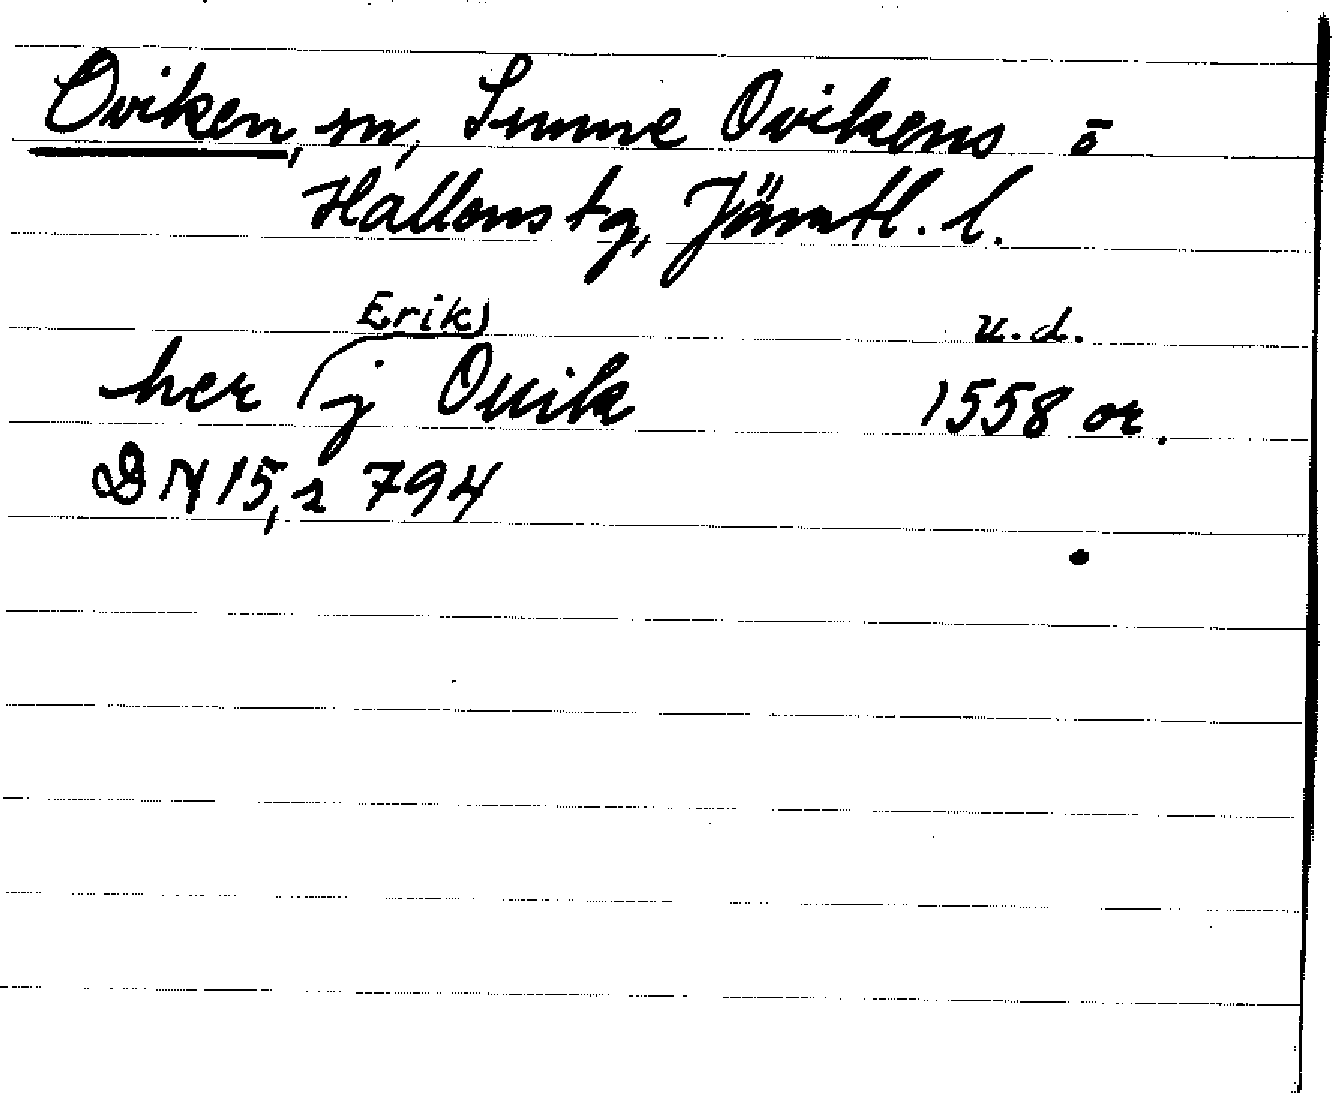 Oviken, sn, Sunne Ovikens o
Hallens tg, Jämtl. l.
Erik) u.d.
her (j Ouik 1558 or.
DN 15, s 794